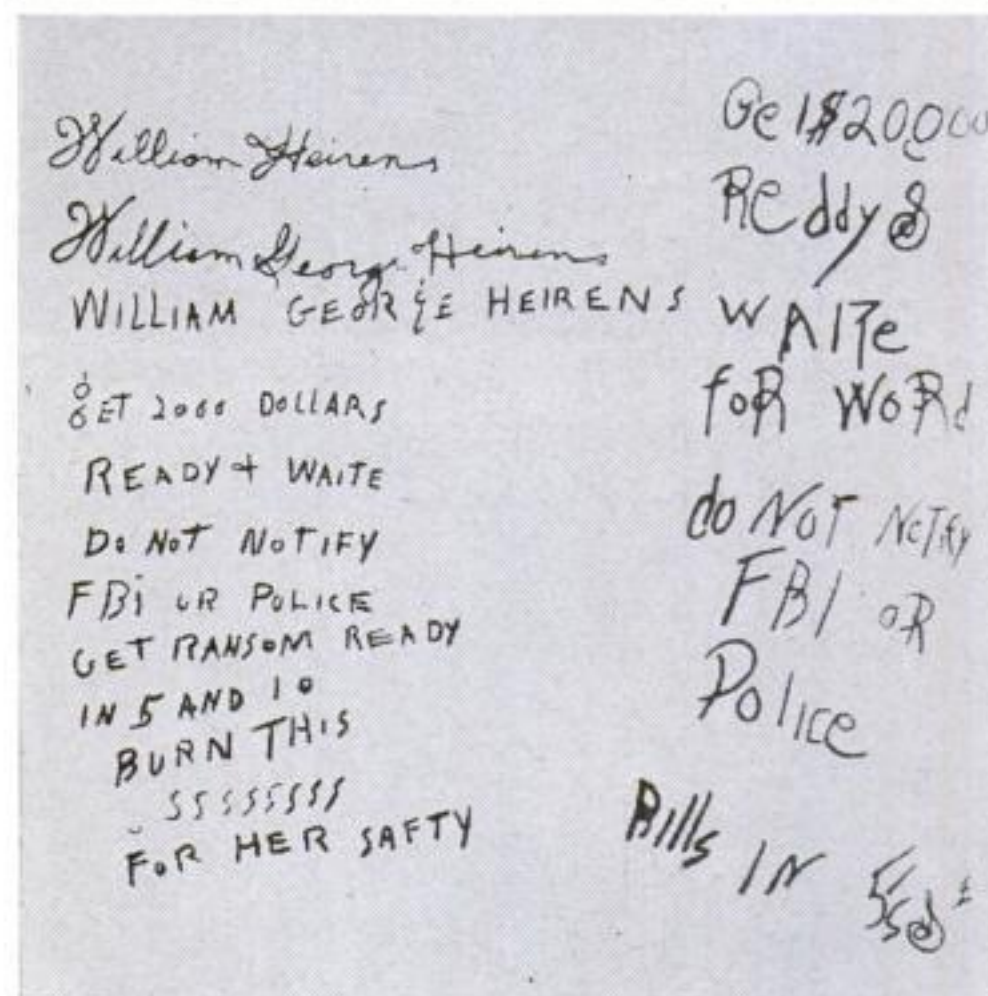 William Heirens
William George Heirens
WILLIAM GEORGE HEIRENS
GET 2000 DOLLARS
READY & WAITE
DO NOT NOTIFY
FBi OR POLICE
GET RANSOM READY
IN 5 AND 10
BURN THIS
SSSSSSSS
FOR HER SAFTY
Ge1$20,000
ReddY &
WAITe
foR WoRd
do NoT NoTify
FBI oR
Police
Bills IN 5's &